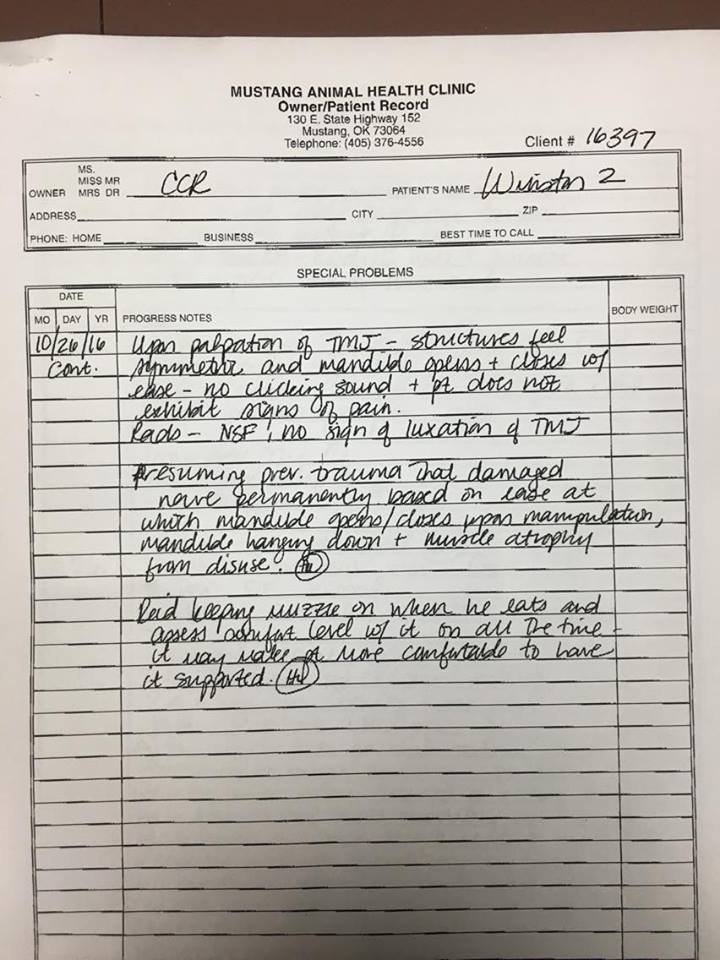 MUSTANG ANIMAL HEALTH CLINIC
Owner/Patient Record
130 E. State Highway 152
Mustang, OK 73064
Telephone: (405) 376-4556
Client # 16397
MS.
MISS MR
OWNER MRS DR CCR PATIENT'S NAME Winston 2
ADDRESS CITY ZIP
PHONE: HOME BUSINESS BEST TIME TO CALL
SPECIAL PROBLEMS
DATE
MO DAY YR PROGRESS NOTES BODY WEIGHT
10/26/16 Upon palpation of TMJ - structures feel
Cont. symmetric and mandible opens + closes w/
ease - no clicking sound + pt does not
exhibit signs of pain.
Rads - NSF; no sign of luxation of TMJ
Presuming prev. trauma that damaged
nerve permanently based on ease at
which mandible opens/closes upon manipulation,
mandible hanging down + muscle atrophy
from disuse.
keeping muzzle on when he eats and
assess comfort level w/ it on all the time -
it may make pt more comfortable to have
it supported.